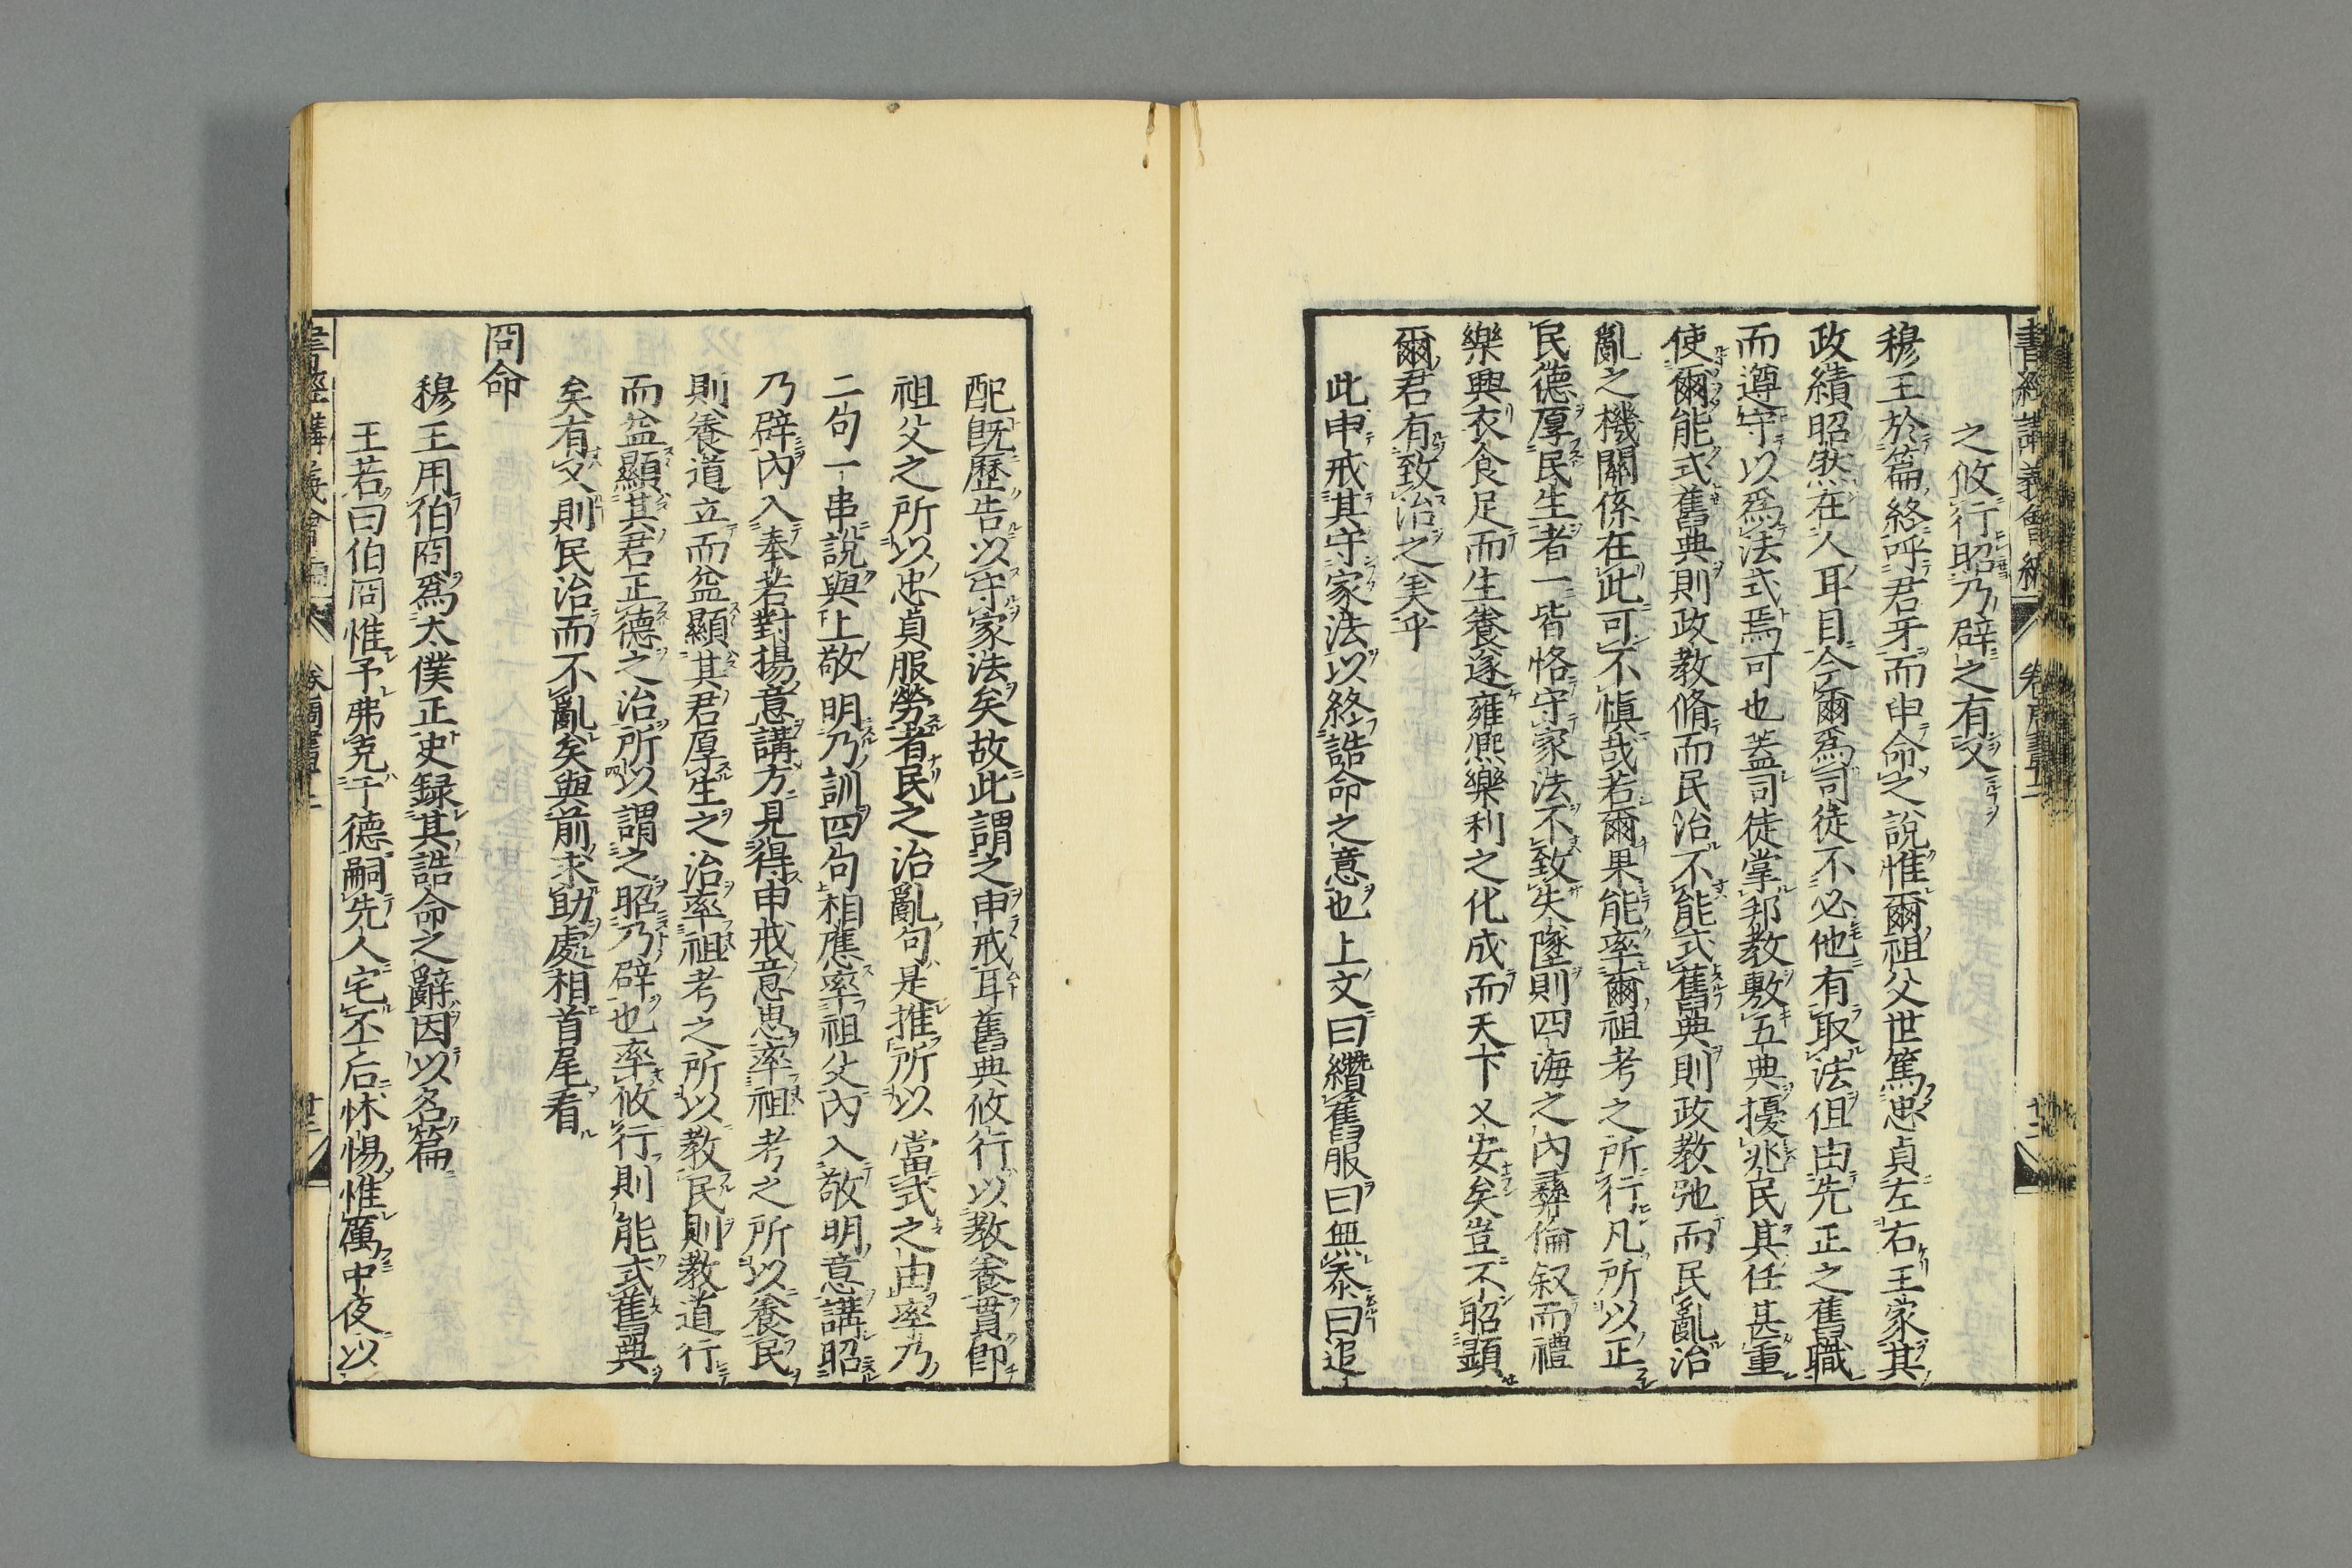 之攸行昭乃辟之有乂
穆王於篇終呼君牙而申命之說惟爾祖父世篤忠貞左右王家其
政績昭然在人耳目今爾爲司徒不必他有取法但由先正之舊職
而遵守以爲法式焉可也蓋司徒掌邦教敷五典擾兆民其任甚重
使爾能式舊典則政教脩而民治不能式舊典則政教弛而民亂治
亂之機關係在此可不愼哉若爾果能率爾祖考之所行凡所以正
民德厚民生者一皆恪守家法不致失墜則四海之內彝倫叙而禮
樂興衣食足而生養遂雍熈樂利之化成而天下乂安矣豈不昭顯
爾君有致治之美乎
此申戒其守家法以終誥命之意也上文曰纘舊服曰無忝曰追
配既歷告以守家法矣故此謂之申戒耳舊典攸行以教養貫卽
祖父之所以忠貞服勞者民之治亂句是推所以當式之由率乃
二句一串說與上敬明乃訓四句相應率祖父內入敬明意講昭
乃辟內入奉若對揚意講方見得申戒意思率祖考之所以養民
則養道立而益顯其君厚生之治率祖考之所以教民則教道行
而益顯其君正德之治所以謂之昭乃辟也率攸行則能式舊典
矣有乂則民治而不亂矣與前求助處相首尾看
冏命
穆王用伯冏爲太僕正史録其誥命之辭因以名篇
王若曰伯冏惟予弗克于德嗣先人宅丕后怵惕惟厲中夜以